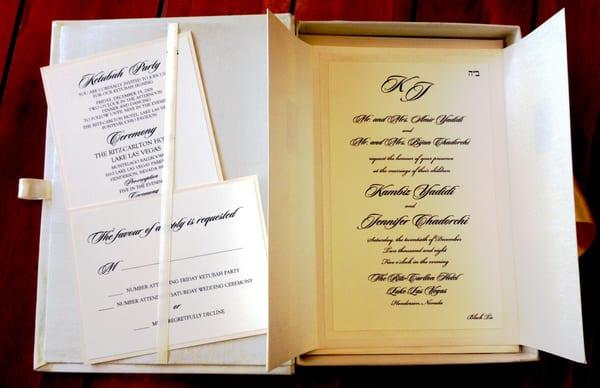 Ketubah Party
YOU ARE CORDIALLY INVITED TO JOIN US
FOR OUR KETUBAH SIGNING
FRIDAY, DECEMBER 19, 2008
TWO O'CLOCK IN THE AFTERNOON
DINNER AND DANCING
TO FOLLOW UNTIL NINE IN THE EVENING
THE RITZ-CARLTON HOTEL, LAKE LAS VEGAS
PONTEVECCHIO PAVILION
Ceremony
THE RITZ-CARLTON HO
LAKE LAS VEGAS
MONTELAGO BALLROOM
HENDERSON, NEVADA
FIVE IN THE EVENING
The favour of a reply is requested
M
NUMBER ATTENDING FRIDAY KETUBAH PARTY
NUMBER ATTENDING SATURDAY WEDDING CEREMONY
or
REGRETFULLY DECLINE
ב״ה
KJ
Mr. and Mrs. Amir Yadidi
and
Mr. and Mrs. Bijan Chadorchi
request the honour of your presence
at the marriage of their children
Kambiz Yadidi
and
Jennifer Chadorchi
Saturday, the twentieth of December
Two thousand and eight
Five o'clock in the evening
The Ritz-Carlton Hotel
Lake Las Vegas
Henderson, Nevada
Black Tie